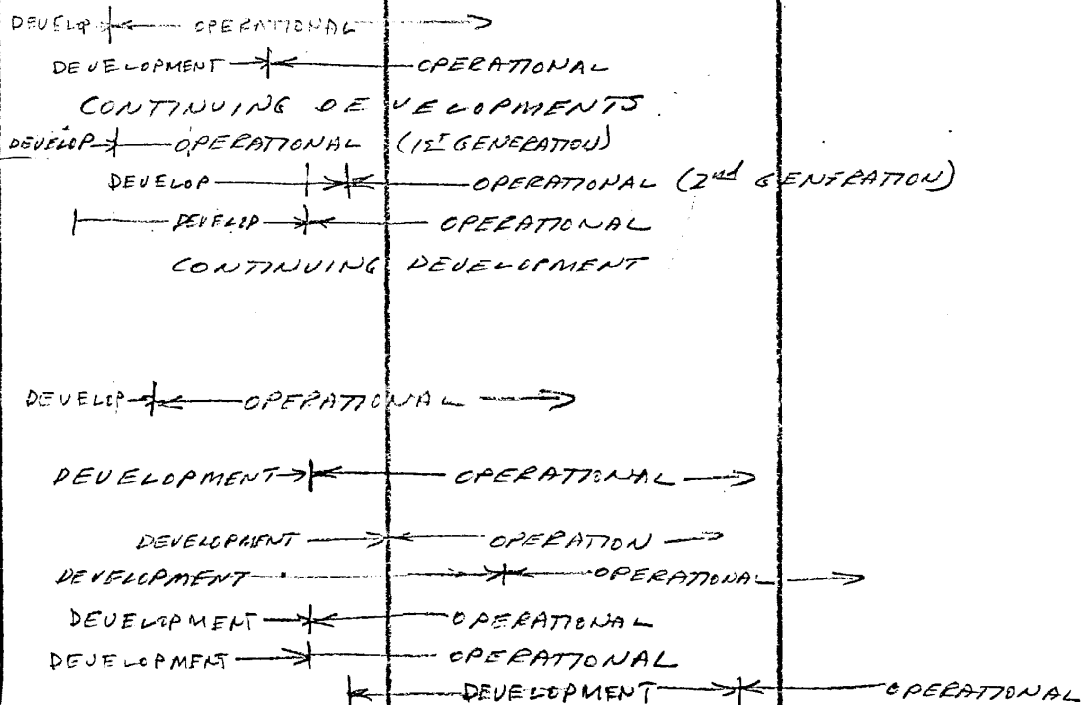 DEVELOP OPERATIONAL
DEVELOPMENT OPERATIONAL
CONTINUING DEVELOPMENTS
DEVELOP OPERATIONAL (1ST GENERATION)
DEVELOP OPERATIONAL (2nd GENERATION)
DEVELOP OPERATIONAL
CONTINUING DEVELOPMENT
DEVELOP OPERATIONAL
DEVELOPMENT OPERATIONAL
DEVELOPMENT OPERATION
DEVELOPMENT OPERATIONAL
DEVELOPMENT OPERATIONAL
DEVELOPMENT OPERATIONAL
DEVELOPMENT OPERATIONAL